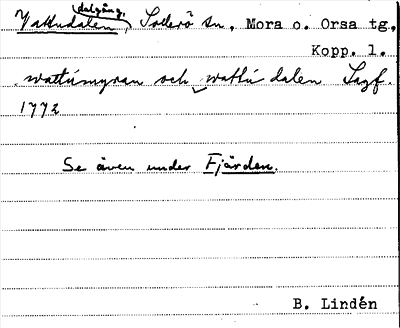 Vattudalen, dalgång, Sollerö sn, Mora o. Orsa tg,
Kopp. l.
wattúmyran och wattú dalen Lagf.
1772
Se även under Fjärden.
B. Lindén